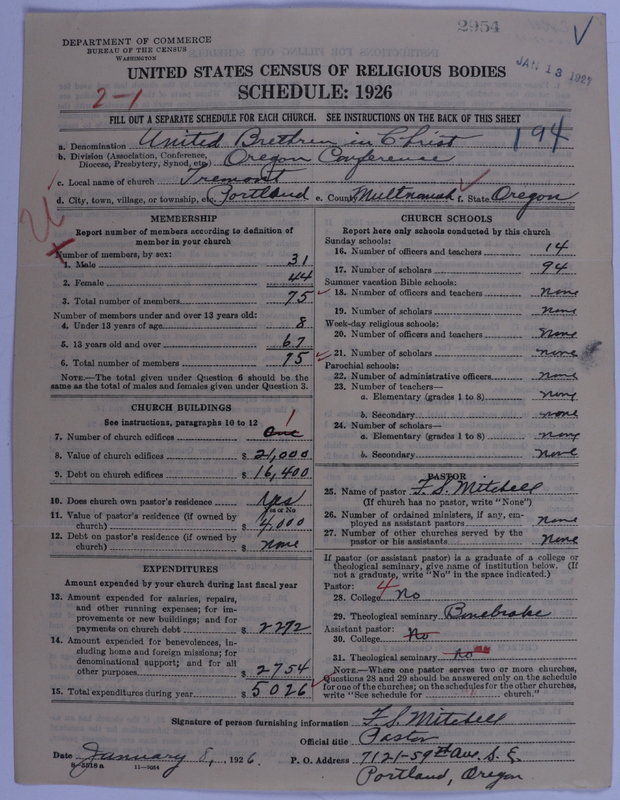 2954
DEPARTMENT OF COMMERCE
BUREAU OF THE CENSUS
WASHINGTON
JAN 13 1927
UNITED STATES CENSUS OF RELIGIOUS BODIES
SCHEDULE: 1926
2-1
FILL OUT A SEPARATE SCHEDULE FOR EACH CHURCH. SEE INSTRUCTIONS ON THE BACK OF THIS SHEET
194
a. Denomination United Brethren in Christ
b. Division (Association, Conference, Diocese, Presbytery, Synod, etc.) Oregon Conference
c. Local name of church Tremont
d. City, town, village, or township, etc. Portland e. County Multnomah f. State Oregon
MEMBERSHIP
Report number of members according to definition of
member in your church
Number of members, by sex:
1. Male 31
2. Female 44
3. Total number of members 75
Number of members under and over 13 years old:
4. Under 13 years of age 8
5. 13 years old and over 67
6. Total number of members 75
NOTE.—The total given under Question 6 should be the
same as the total of males and females given under Question 3.
CHURCH BUILDINGS
See instructions, paragraphs 10 to 12
7. Number of church edifices One 1
8. Value of church edifices $ 21,000
9. Debt on church edifices $ 16,400
10. Does church own pastor's residence Yes
Yes or No
11. Value of pastor's residence (if owned by
church) $ 4,000
12. Debt on pastor's residence (if owned by
church) $ none
EXPENDITURES
Amount expended by your church during last fiscal year
13. Amount expended for salaries, repairs,
and other running expenses; for im-
provements or new buildings; and for
payments on church debt $ 2272
14. Amount expended for benevolences, in-
cluding home and foreign missions; for
denominational support; and for all
other purposes $ 2754
15. Total expenditures during year $ 5026
CHURCH SCHOOLS
Report here only schools conducted by this church
Sunday schools:
16. Number of officers and teachers 14
17. Number of scholars 94
Summer vacation Bible schools:
18. Number of officers and teachers none
19. Number of scholars none
Week-day religious schools:
20. Number of officers and teachers none
21. Number of scholars none
Parochial schools:
22. Number of administrative officers none
23. Number of teachers—
a. Elementary (grades 1 to 8) none
b. Secondary none
24. Number of scholars—
a. Elementary (grades 1 to 8) none
b. Secondary none
PASTOR
25. Name of pastor F. S. Mitchell
(If church has no pastor, write "None")
26. Number of ordained ministers, if any, em-
ployed as assistant pastors none
27. Number of other churches served by the
pastor or his assistants none
If pastor (or assistant pastor) is a graduate of a college or
theological seminary, give name of institution below. (If
not a graduate, write "No" in the space indicated.)
Pastor: 4
28. College No
29. Theological seminary Bonebrake
Assistant pastor:
30. College No
31. Theological seminary no
NOTE.—Where one pastor serves two or more churches,
Questions 28 and 29 should be answered only on the schedule
for one of the churches; on the schedules for the other churches,
write "See schedule for church."
Signature of person furnishing information F. S. Mitchell
Official title Pastor
Date January 8, 1926. P. O. Address 7121-59th Ave. S. E.
8-5518a 11-5054 Portland, Oregon